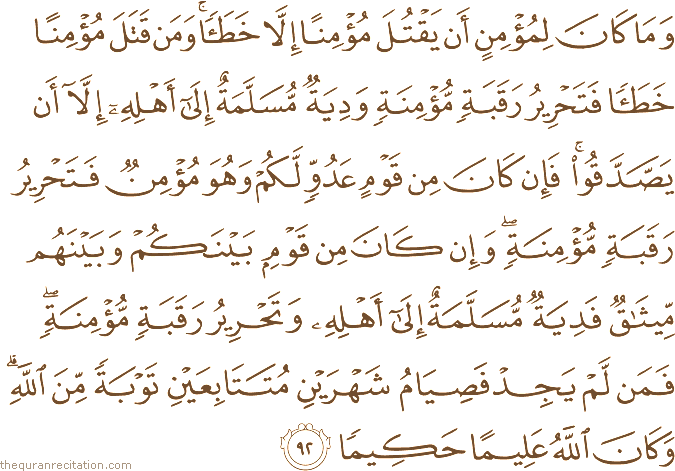 وَمَا كَانَ لِمُؤْمِنٍ أَن يَقْتُلَ مُؤْمِنًا إِلَّا خَطَـًٔا ۚ وَمَن قَتَلَ مُؤْمِنًا
خَطَـًٔا فَتَحْرِيرُ رَقَبَةٍ مُّؤْمِنَةٍ وَدِيَةٌ مُّسَلَّمَةٌ إِلَىٰٓ أَهْلِهِۦٓ إِلَّآ أَن
يَصَّدَّقُوا۟ ۚ فَإِن كَانَ مِن قَوْمٍ عَدُوٍّ لَّكُمْ وَهُوَ مُؤْمِنٌ فَتَحْرِيرُ
رَقَبَةٍ مُّؤْمِنَةٍ ۖ وَإِن كَانَ مِن قَوْمٍۭ بَيْنَكُمْ وَبَيْنَهُم
مِّيثَـٰقٌ فَدِيَةٌ مُّسَلَّمَةٌ إِلَىٰٓ أَهْلِهِۦ وَتَحْرِيرُ رَقَبَةٍ مُّؤْمِنَةٍ ۖ
فَمَن لَّمْ يَجِدْ فَصِيَامُ شَهْرَيْنِ مُتَتَابِعَيْنِ تَوْبَةً مِّنَ ٱللَّهِ ۗ
وَكَانَ ٱللَّهُ عَلِيمًا حَكِيمًا ٩٢
thequranrecitation.com